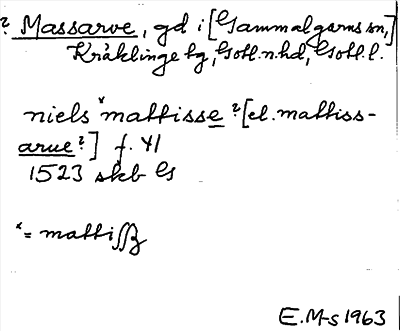 ? Massarve, gd i [Gammalgarns sn,]
Kräklinge tg, Gotl. n. hd, Gotl. l.
niels ˣmattisse ? [el. mattiss-
arue ?] f. 41
1523 skb Gs
ˣ = mattiſſz
E. M-s 1963